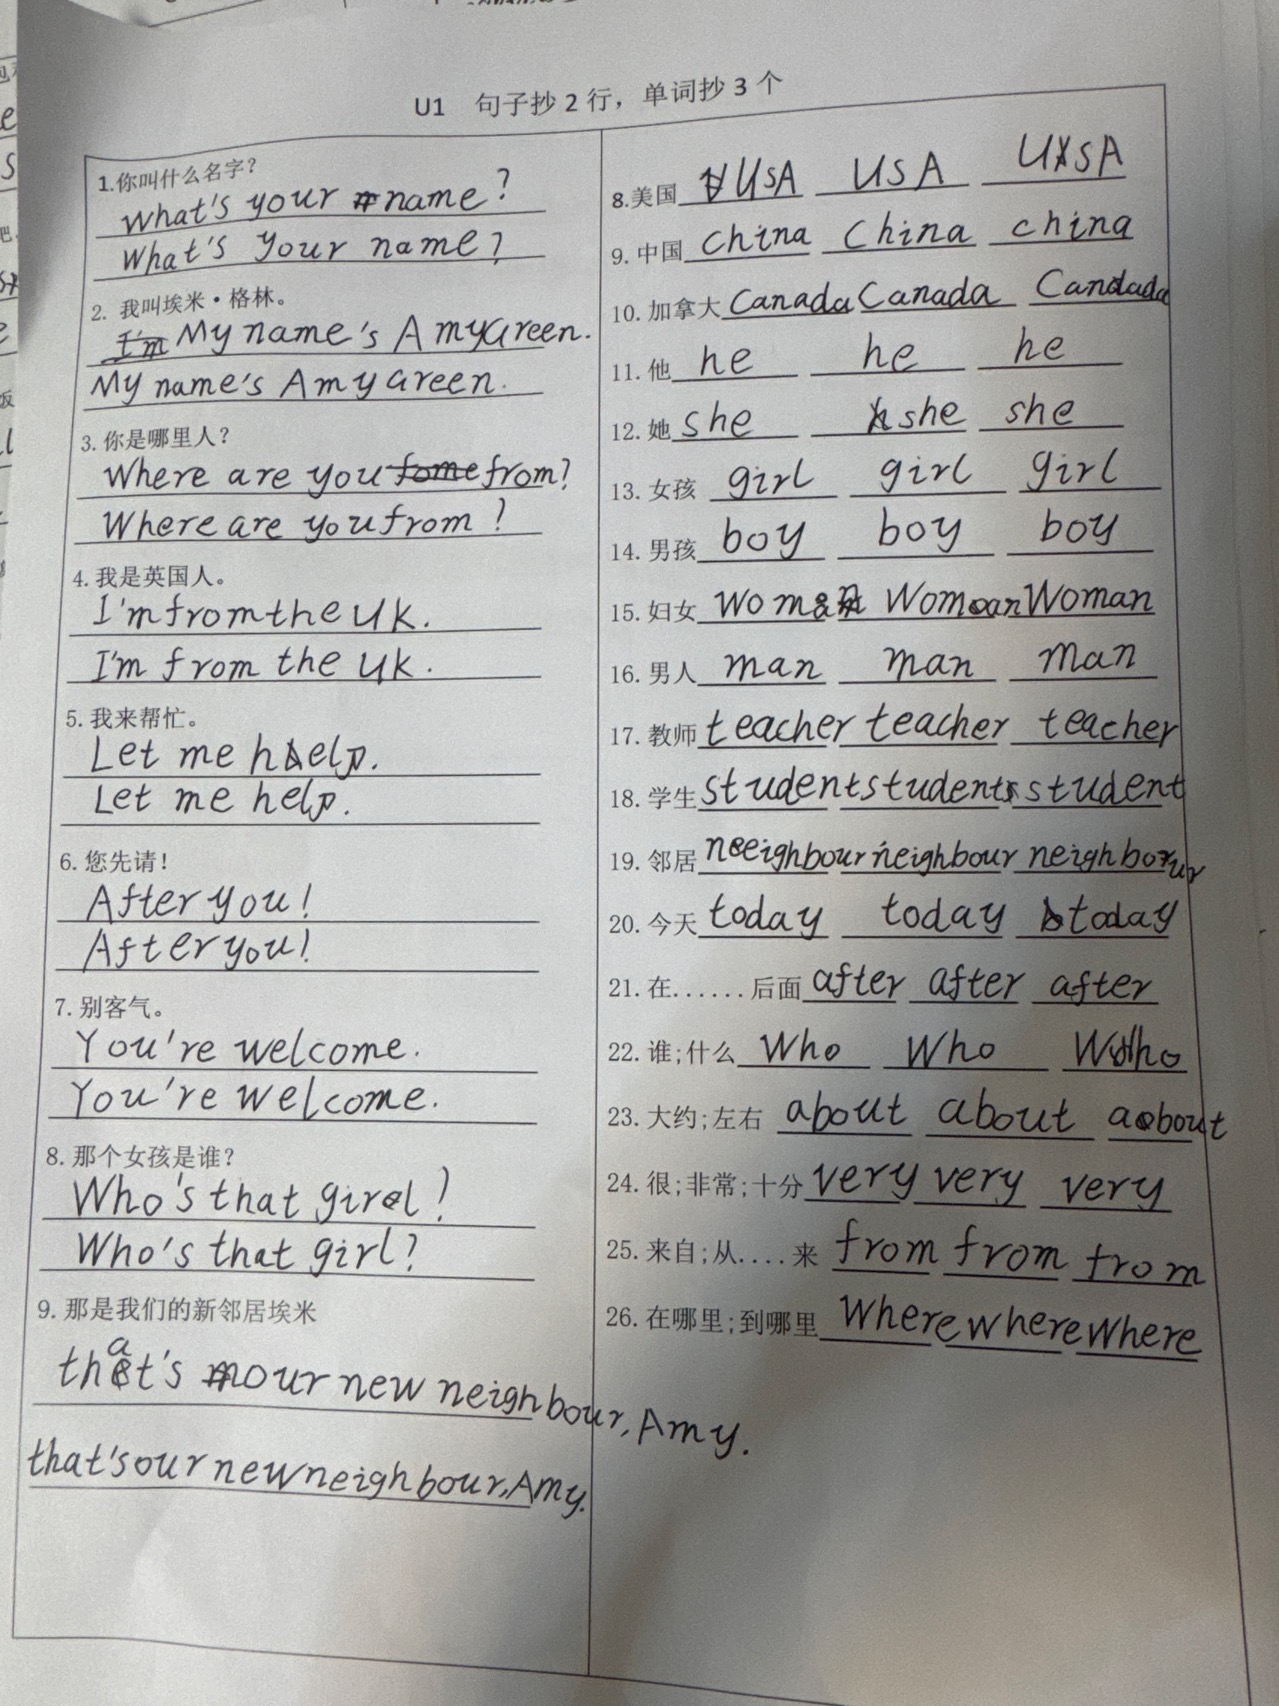 U1 句子抄2行，单词抄3个
1.你叫什么名字？
What's your name?
What's your name?
2. 我叫埃米·格林。
I'm My name's Amy Green.
My name's Amy Green.
3. 你是哪里人？
Where are you fome from?
Where are you from?
4. 我是英国人。
I'm from the UK.
I'm from the UK.
5. 我来帮忙。
Let me help.
Let me help.
6. 您先请！
After you!
After you!
7. 别客气。
You're welcome.
You're welcome.
8. 那个女孩是谁？
Who's that girl?
Who's that girl?
9. 那是我们的新邻居埃米
that's our new neighbour, Amy.
that's our new neighbour, Amy.
8.美国 USA USA USA
9. 中国 China China china
10. 加拿大 Canada Canada Canada
11. 他 he he he
12. 她 she she she
13. 女孩 girl girl girl
14. 男孩 boy boy boy
15. 妇女 Woman Woman Woman
16. 男人 man man man
17. 教师 teacher teacher teacher
18. 学生 student student student
19. 邻居 neighbour neighbour neighbour
20. 今天 today today today
21. 在......后面 after after after
22. 谁;什么 Who Who Who
23. 大约;左右 about about about
24. 很;非常;十分 very very very
25. 来自;从....来 from from from
26. 在哪里;到哪里 Where where where